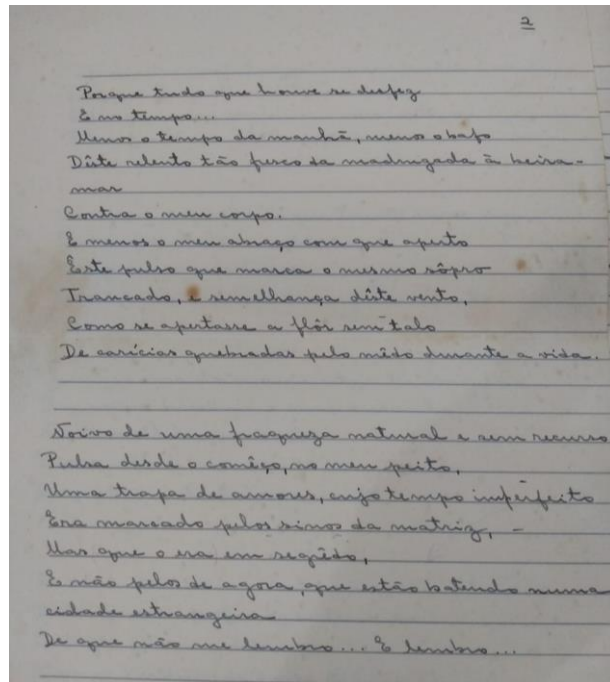 2
Porque tudo que houve se desfez
E no tempo...
Menos o tempo da manhã, menos o bafo
Dêste relento tão fresco da madrugada à beira-
mar
Contra o meu corpo.
E menos o meu abraço com que aperto
Este pulso que marca o mesmo sôpro
Trancado, e semelhança dêste vento,
Como se apertasse a flôr sem talo
De carícias quebradas pelo mêdo durante a vida.
Noivo de uma fraqueza natural e sem recurso
Pulsa desde o comêço, no meu peito,
Uma trapa de amores, cujo tempo imperfeito
Era marcado pelos sinos da matriz, –
Mas que o era em segrêdo,
E não pelos de agora, que estão batendo numa
cidade estrangeira
De que não me lembro... E lembro...